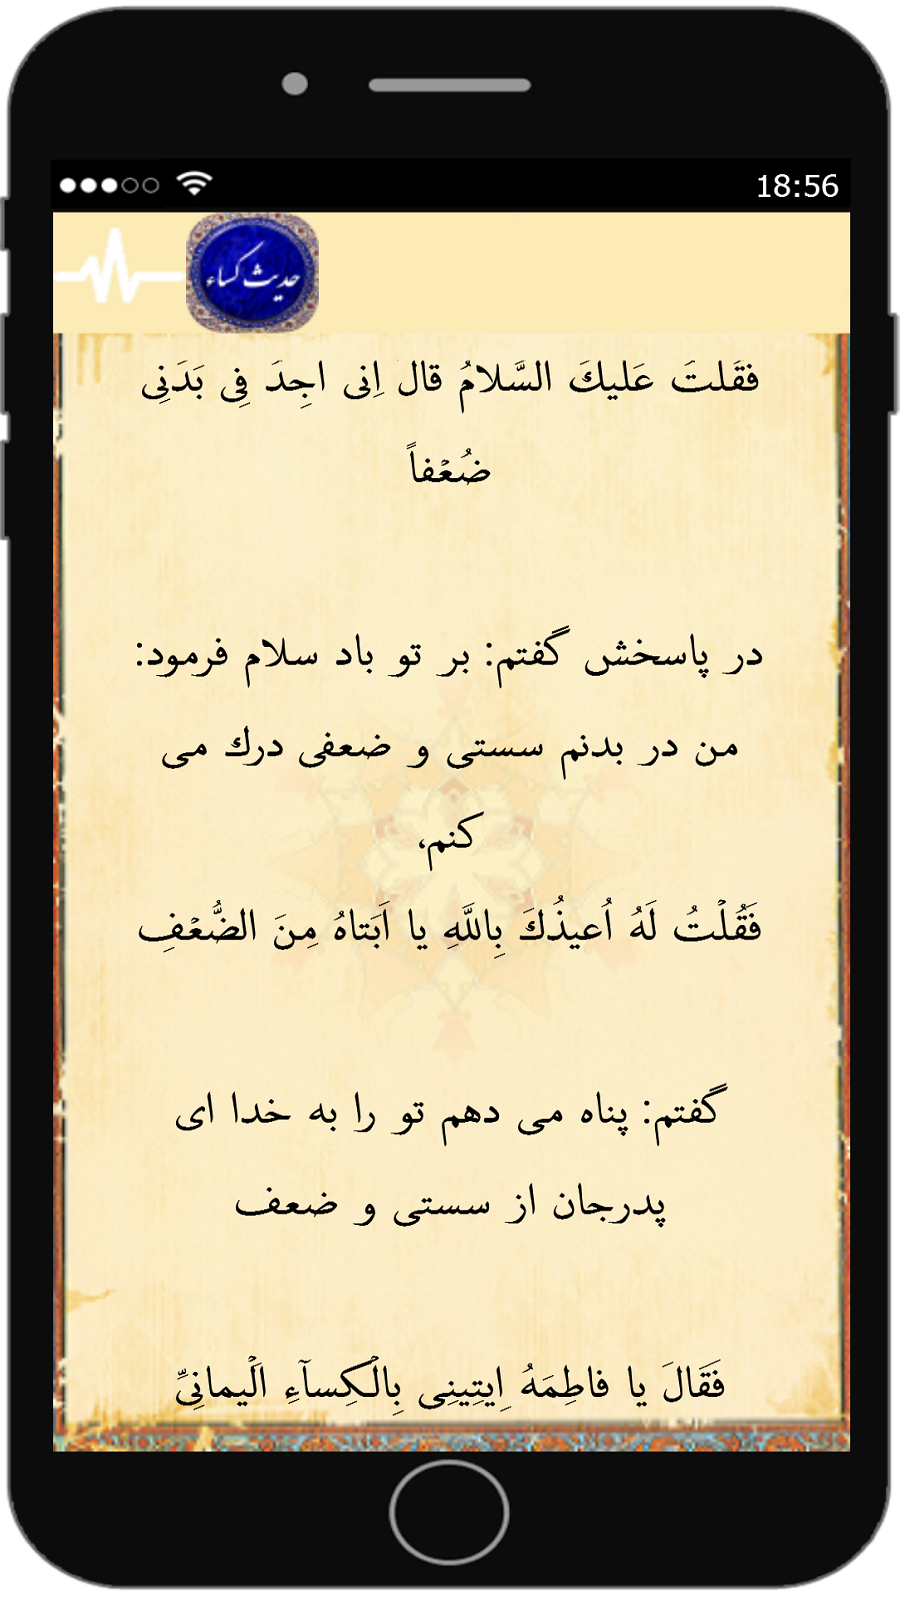 18:56
حدیث کساء
فقَلتَ عَلیكَ السَّلامُ قال اِنی اجِدَ فِی بَدَنِی
ضُعْفاً
در پاسخش گفتم: بر تو باد سلام فرمود:
من در بدنم سستی و ضعفی درك می
کنم،
فَقُلْتُ لَهُ اُعیذُكَ بِاللَّهِ یا اَبَتاهُ مِنَ الضُّعْفِ
گفتم: پناه می دهم تو را به خدا ای
پدرجان از سستی و ضعف
فَقَالَ یا فاطِمَهُ اِیتِینِی بِالْکِسآءِ الْیمانِیِّ